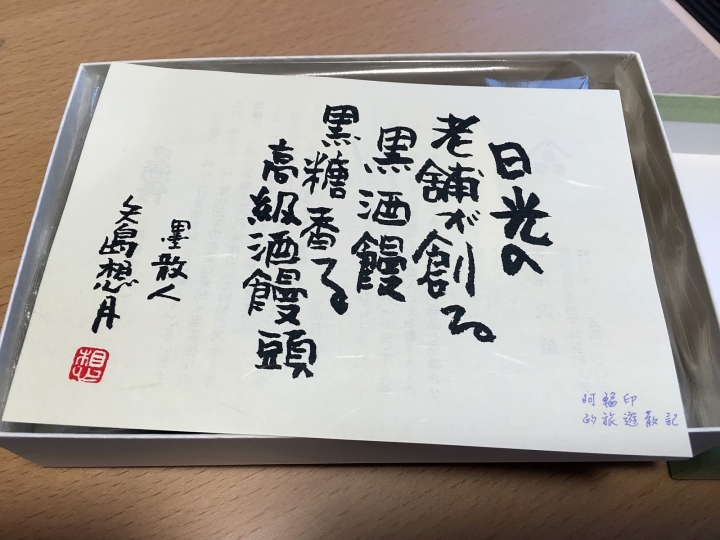 日光の
老舗が創る
黒酒饅
黒糖香る
高級酒饅頭
墨散人
矢島想月
阿輪印
的旅遊散記